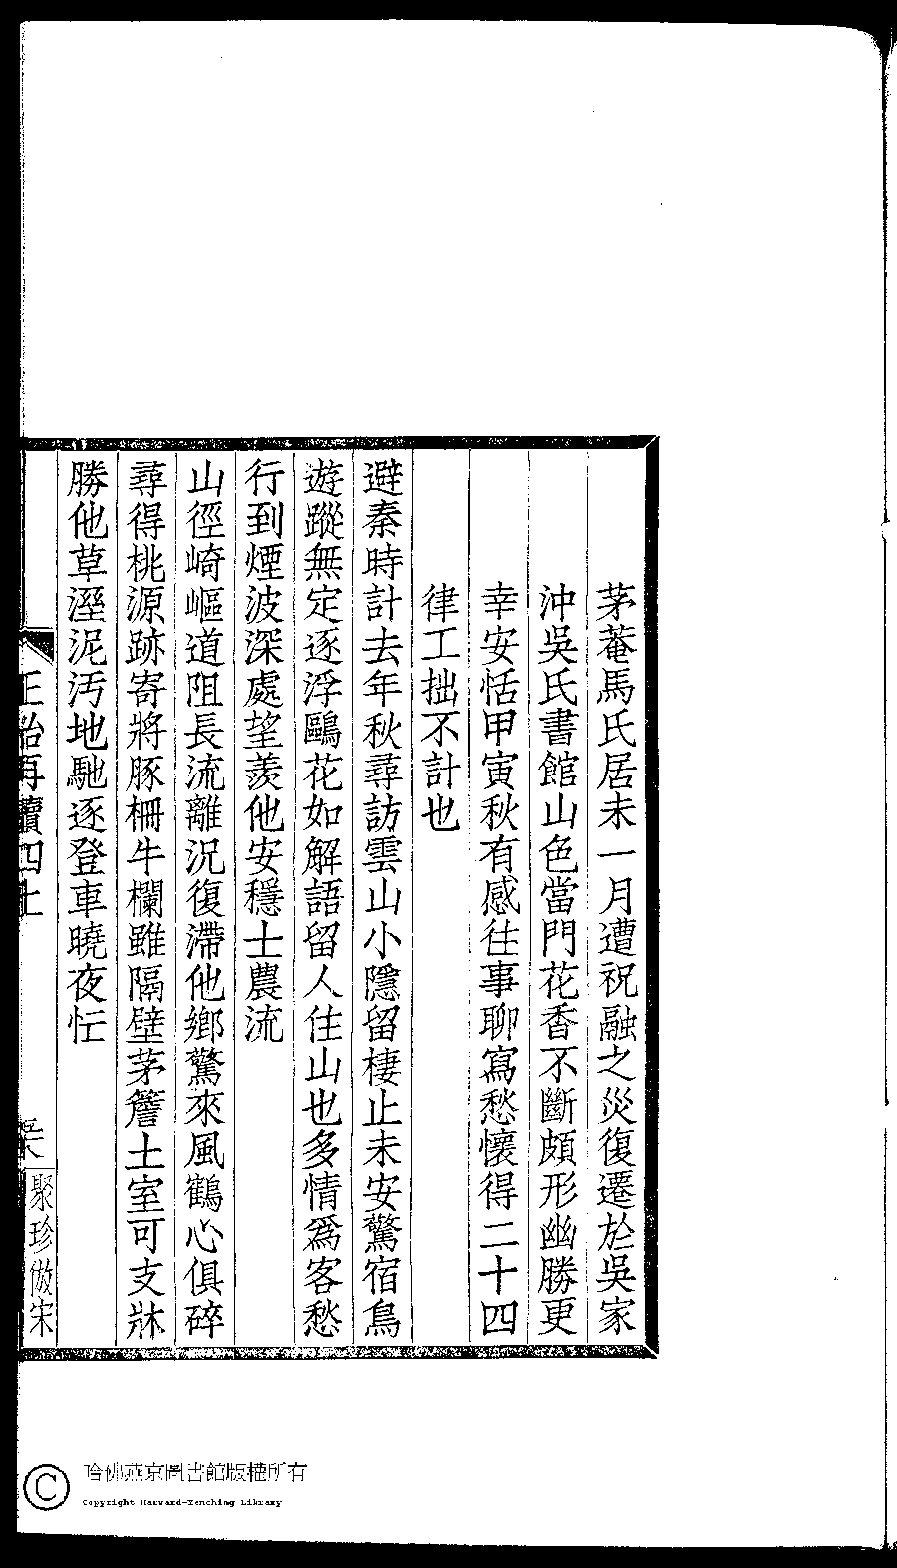 茅菴馬氏居未一月遭祝融之災復遷於吳家
沖吳氏書館山色當門花香不斷頗形幽勝更
幸安恬甲寅秋有感往事聊寫愁懷得二十四
律工拙不計也
避秦時計去年秋尋訪雲山小隱留棲止未安驚宿鳥
遊蹤無定逐浮鷗花如解語留人住山也多情爲客愁
行到煙波深處望羨他安穩士農流
山徑崎嶇道阻長流離況復滯他鄉驚來風鶴心俱碎
尋得桃源跡寄將豚柵牛欄雖隔壁茅簷土室可支牀
勝他草溼泥汚地馳逐登車曉夜忙
正始再續四上
聚珍倣宋
哈佛燕京圖書館版權所有
Copyright Harvard-Yenching Library